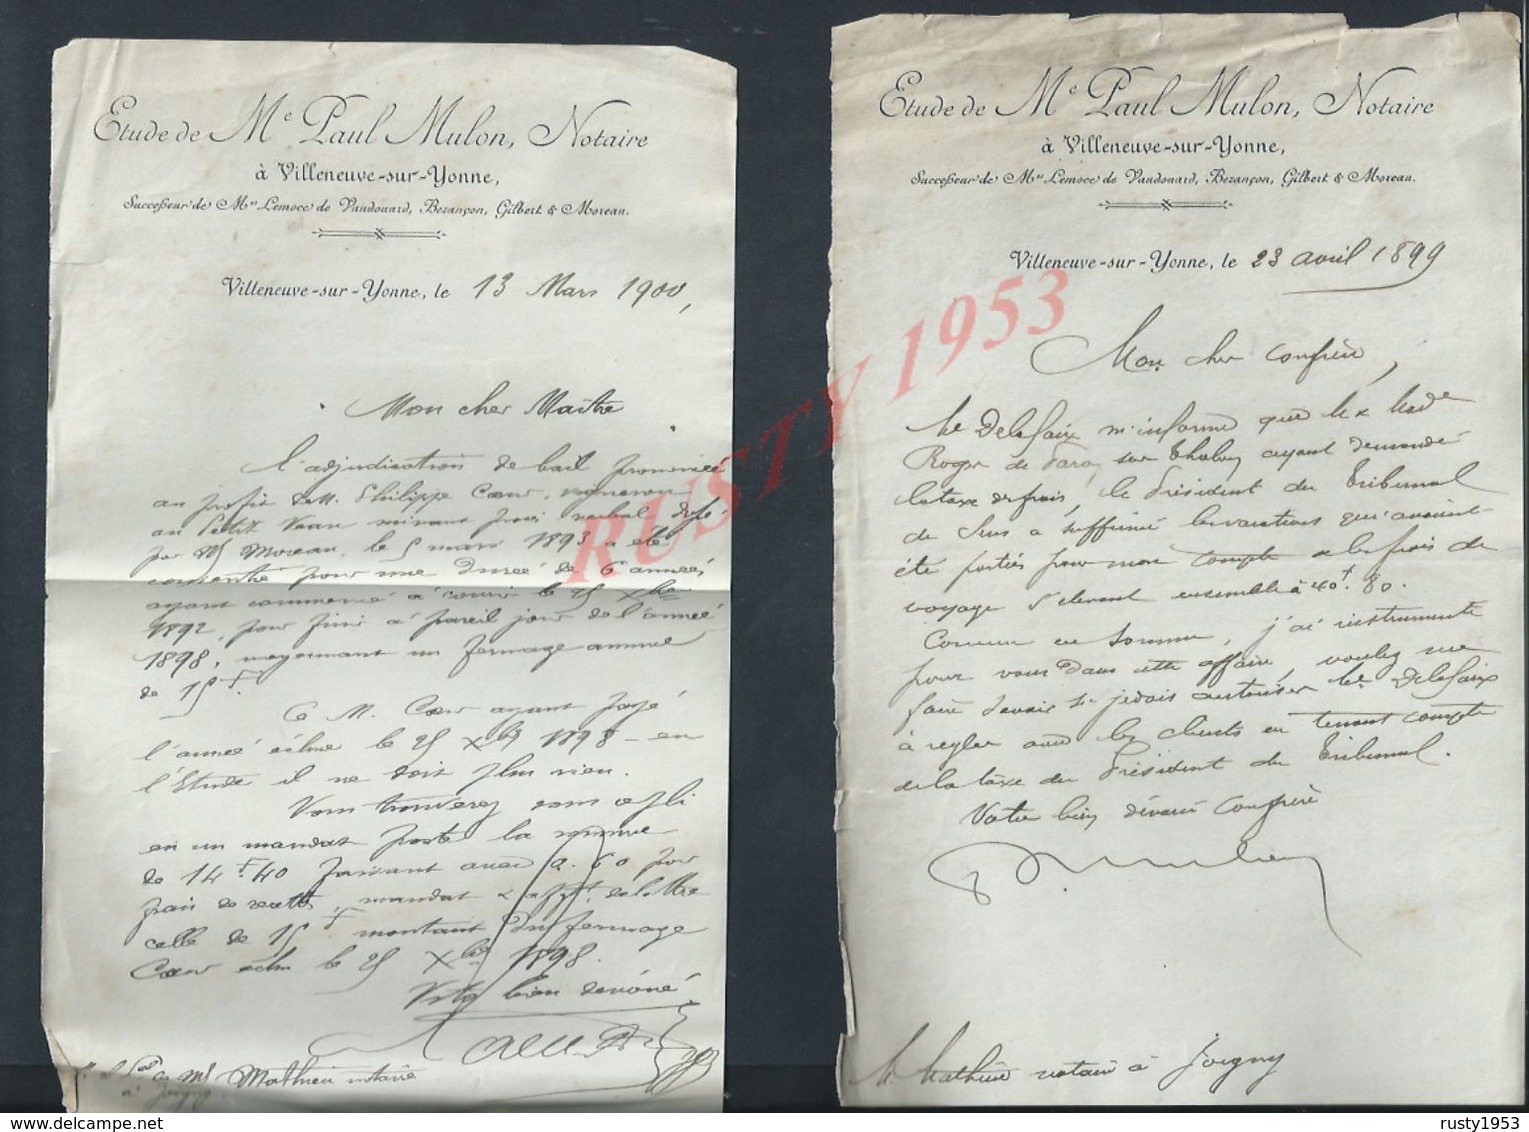 Etude de Me Paul Mulon, Notaire
à Villeneuve-sur-Yonne,
Successeur de Mes Lemoce de Vandouard, Bezançon, Gilbert & Moreau.
Villeneuve-sur-Yonne, le 13 Mars 1900,
Mon cher Maître
L'adjudication de bail prononcée
au profit de M. Philippe Cœur, vigneron
au Petit Vaau suivant procès verbal dressé
par Me Moreau, le 5 mars 1893 a été
consentie pour une durée de 6 années,
ayant commencé à courir le 25 Xbre
1892, pour finir à pareil jour de l'année
1898, moyennant un fermage annuel
de 15f.
Ce M. Cœur ayant payé
l'année échue le 25 Xbre 1898 en
l'Etude il ne doit plus rien.
Vous trouverez sous ce pli
en un mandat poste la somme
de 14f.40 faisant avec 0.60 pour
frais de recette, mandat & affrt. de lettre
celle de 15f montant du fermage
Cœur échu le 25 Xbre 1898.
Votre bien dévoué
Me Mathieu notaire
à Joigny
Etude de Me Paul Mulon, Notaire
à Villeneuve-sur-Yonne,
Successeur de Mes Lemoce de Vandouard, Bezançon, Gilbert & Moreau.
Villeneuve-sur-Yonne, le 23 avril 1899
Mon cher Confrère,
Me Delasaix m'informe que M. & Made
Roger de Paroy sur Tholon ayant demandé
la taxe des frais, le Président du Tribunal
de Sens a supprimé les vacations qui avaient
été portées pour mon compte & les frais de
voyage s'élevant ensemble à 40f.80.
Comme en somme, j'ai instrumenté
pour vous dans cette affaire, voulez me
faire savoir si je dois autoriser Me Delasaix
à régler avec les clients en tenant compte
de la taxe du Président du Tribunal.
Votre bien dévoué confrère
P. Mulon
M. Mathieu notaire à Joigny
RUSTY 1953
rusty1953